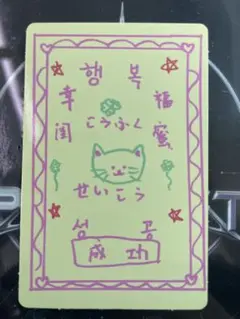 행복
幸福
こうふく
闺蜜
せいこう
성공
成功